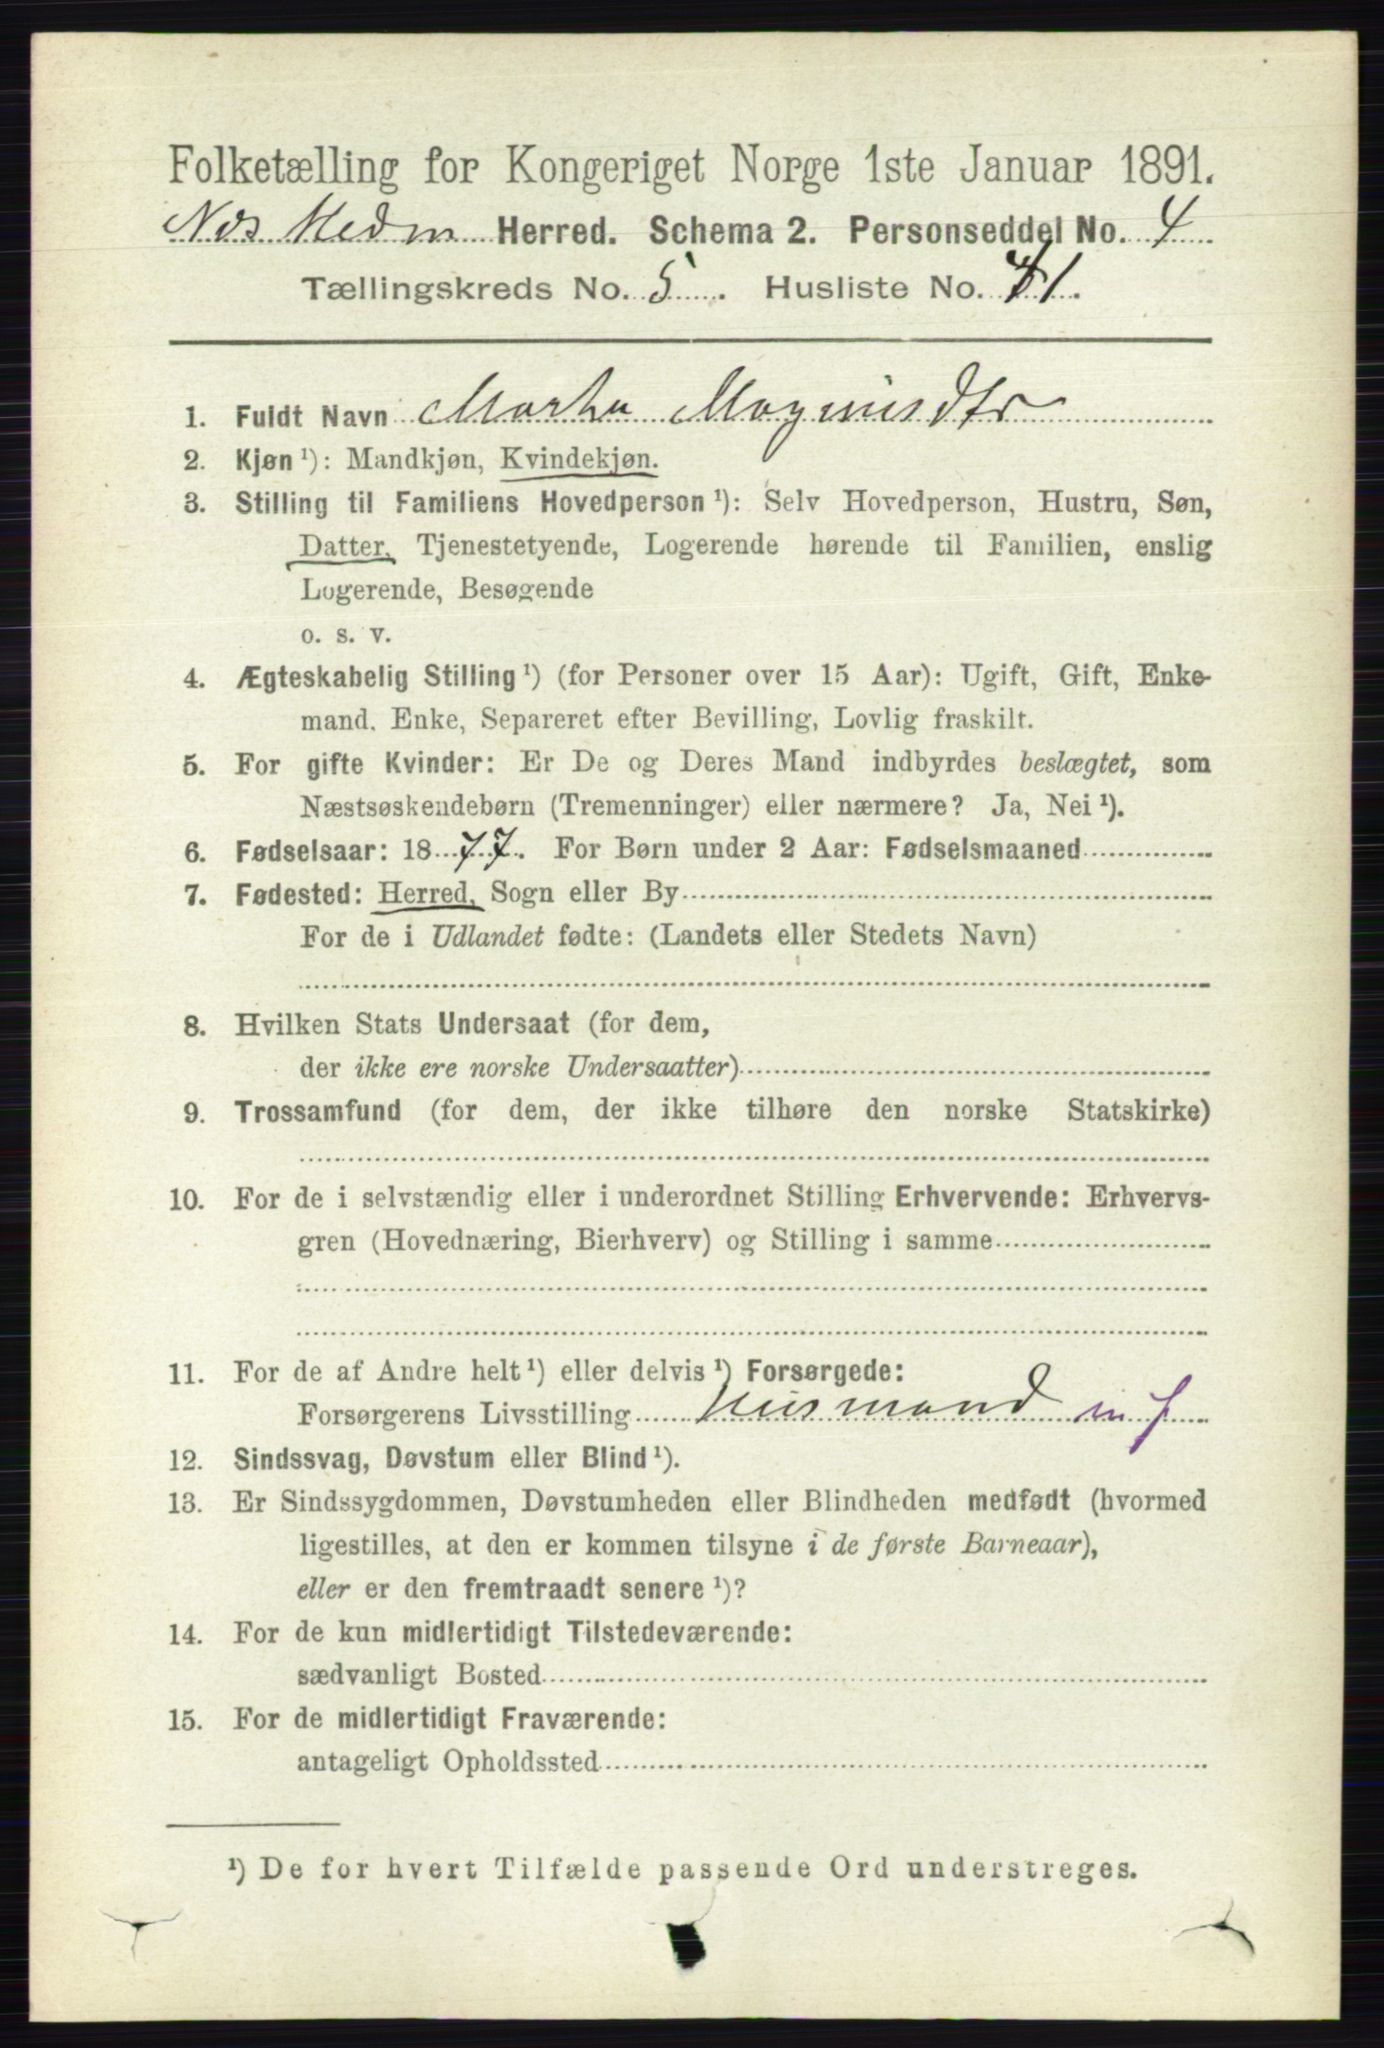 Folketælling for Kongeriget Norge 1ste Januar 1891.
Nes Hedm Herred. Schema 2. Personseddel No. 4
Tællingskreds No. 5. Husliste No. 41.
1. Fuldt Navn Marta Magnusdtr
2. Kjøn ¹): Mandkjøn, Kvindekjøn.
3. Stilling til Familiens Hovedperson ¹): Selv Hovedperson, Hustru, Søn,
Datter, Tjenestetyende, Logerende hørende til Familien, enslig
Logerende, Besøgende
o. s. v.
4. Ægteskabelig Stilling ¹) (for Personer over 15 Aar): Ugift, Gift, Enke-
mand, Enke, Separeret efter Bevilling, Lovlig fraskilt.
5. For gifte Kvinder: Er De og Deres Mand indbyrdes beslægtet, som
Næstsøskendebørn (Tremenninger) eller nærmere? Ja, Nei ¹).
6. Fødselsaar: 1877. For Børn under 2 Aar: Fødselsmaaned
7. Fødested: Herred, Sogn eller By
For de i Udlandet fødte: (Landets eller Stedets Navn)
8. Hvilken Stats Undersaat (for dem,
der ikke ere norske Undersaatter)
9. Trossamfund (for dem, der ikke tilhøre den norske Statskirke)
10. For de i selvstændig eller i underordnet Stilling Erhvervende: Erhvervs-
gren (Hovednæring, Bierhverv) og Stilling i samme
11. For de af Andre helt ¹) eller delvis ¹) Forsørgede:
Forsørgerens Livsstilling Husmand m j
12. Sindssvag, Døvstum eller Blind ¹).
13. Er Sindssygdommen, Døvstumheden eller Blindheden medfødt (hvormed
ligestilles, at den er kommen tilsyne i de første Barneaar),
eller er den fremtraadt senere ¹)?
14. For de kun midlertidigt Tilstedeværende:
sædvanligt Bosted
15. For de midlertidigt Fraværende:
antageligt Opholdssted
¹) De for hvert Tilfælde passende Ord understreges.